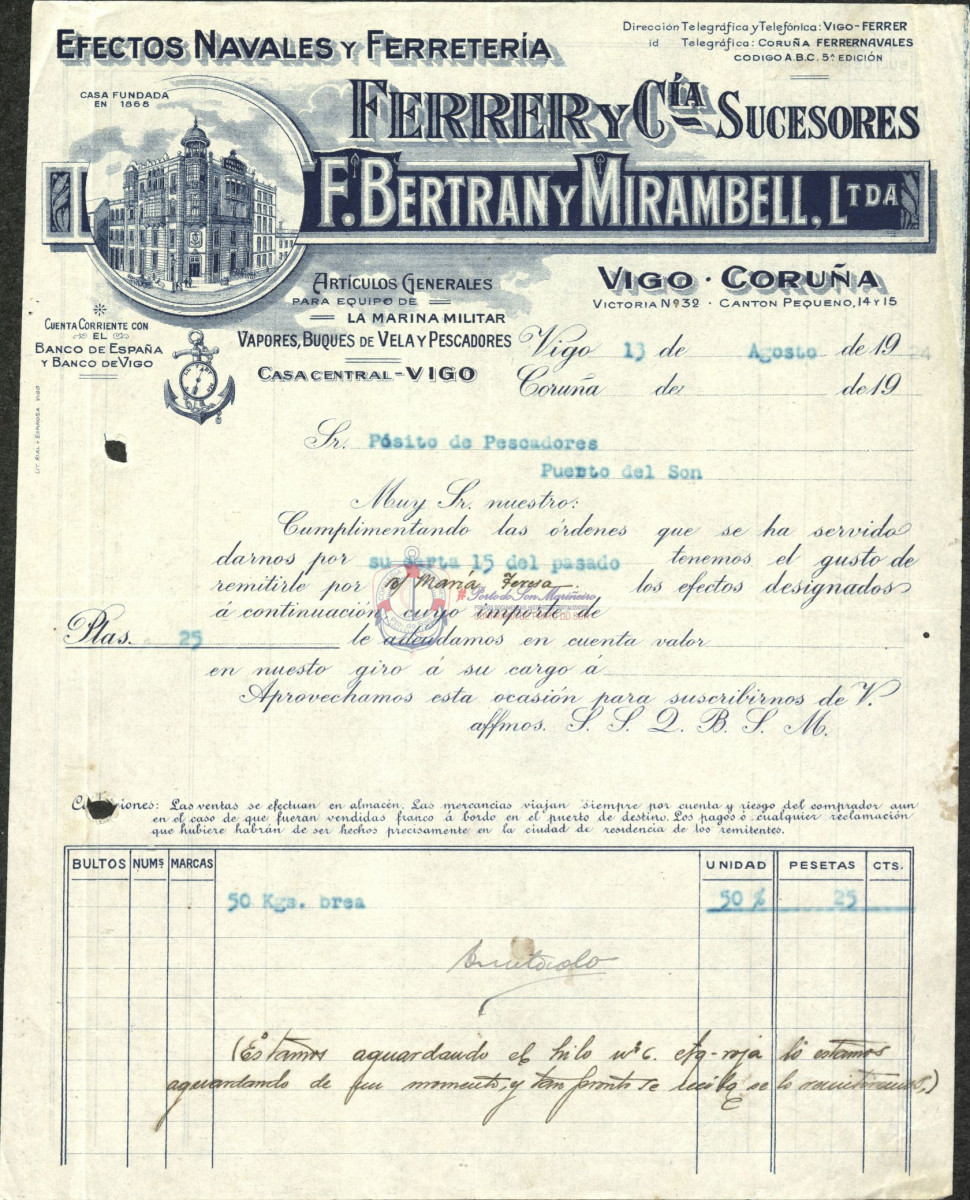 EFECTOS NAVALES Y FERRETERÍA
Dirección Telegráfica y Telefónica: VIGO-FERRER
id Telegráfica: CORUÑA FERRERNAVALES
CODIGO A.B.C. 5ª EDICIÓN
CASA FUNDADA
EN 1868
FERRER Y CÍA SUCESORES
F. BERTRAN Y MIRAMBELL, LTDA
ARTÍCULOS GENERALES
PARA EQUIPO DE
LA MARINA MILITAR
VAPORES, BUQUES DE VELA Y PESCADORES
CASA CENTRAL - VIGO
VIGO · CORUÑA
VICTORIA Nº 32 · CANTON PEQUENO, 14 Y 15
CUENTA CORRIENTE CON
EL
BANCO DE ESPAÑA
Y BANCO DE VIGO
LIT. RIAL Y ESPINOSA VIGO
Vigo 13 de Agosto de 1924
Coruña de de 19
Sr. Pósito de Pescadores
Puerto del Son
Muy Sr. nuestro:
Cumplimentando las órdenes que se ha servido
darnos por su carta 15 del pasado tenemos el gusto de
remitirle por v/ María Teresa los efectos designados
á continuación cuyo importe de
Ptas. 25 le adeudamos en cuenta valor
en nuesto giro á su cargo á
Aprovechamos esta ocasión para suscribirnos de V.
affmos. S. S. Q. B. S. M.
#Porto do Son Mariñeiro
Las ventas se efectuan en almacén. Las mercancias viajan siempre por cuenta y riesgo del comprador aun
en el caso de que fueran vendidas franco á bordo en el puerto de destino. Los pagos ó cualquier reclamación
que hubiere habrán de ser hechos precisamente en la ciudad de residencia de los remitentes.
BULTOS NUMS MARCAS UNIDAD PESETAS CTS.
50 Kgs. brea 50 % 25
(Estamos aguardando el hilo nº 6. etq-roja lo estamos
aguardando de un momento, y tan pronto se reciba se lo remitiremos,)